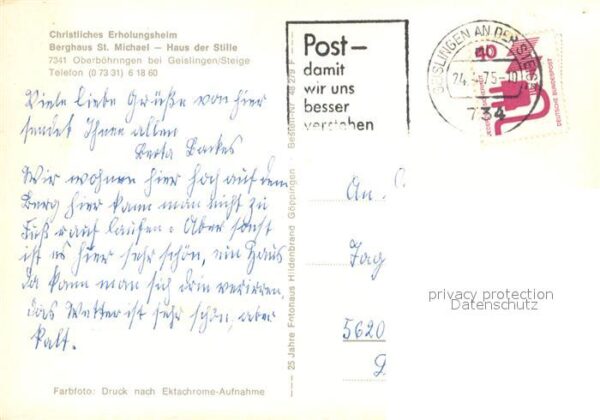 Christliches Erholungsheim
Berghaus St. Michael – Haus der Stille
7341 Oberböhringen bei Geislingen/Steige
Telefon (0 73 31) 6 18 60
Viele liebe Grüße von hier
sendet Ihnen allen
Berta Backes
Wir wohnen hier hoch auf dem
Berg hier kann man nicht zu
Fuß rauf laufen. Aber sonst
ist es hier sehr schön, ein Haus
da kann man sich drin verirren,
das Wetter ist sehr schön, aber
kalt.
Farbfoto: Druck nach Ektachrome-Aufnahme
25 Jahre Fotohaus Hildenbrand Göppingen
Post–
damit
wir uns
besser
verstehen
GEISLINGEN AN DER STEIGE
734
40
DEUTSCHE BUNDESPOST
An
5620
privacy protection
Datenschutz